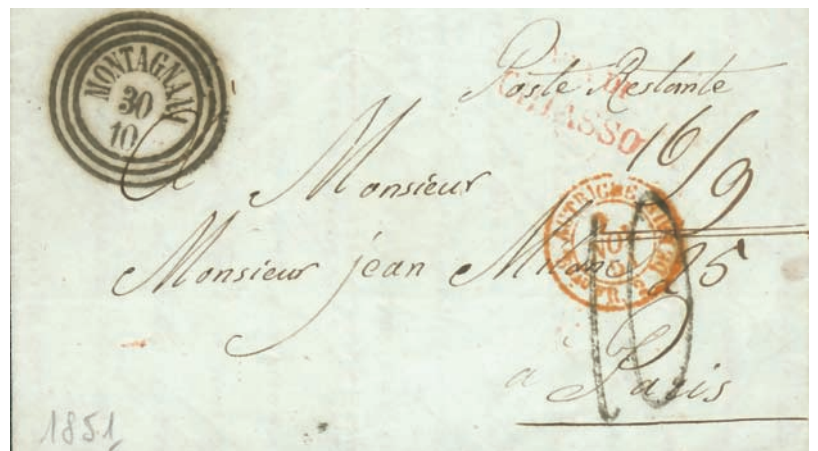 MONTAGNANA
30
10
Poste Restante
VIA DI
CHIASSO
16/9
A Monsieur
Monsieur jean
25
AUTRICHE
NOV
51
10
a Paris
1851